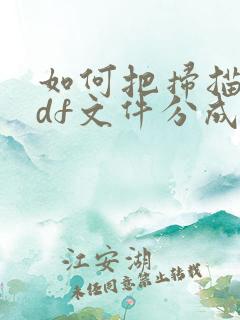 如何把扫描
df文件分成
江安湖
未经同意禁止转载